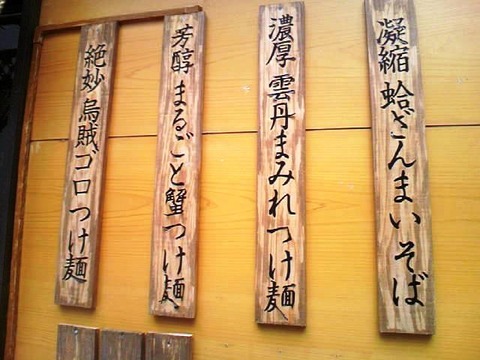 凝縮 蛤ざんまいそば
濃厚 雲丹まみれつけ麺
芳醇 まるごと蟹つけ麺
絶妙 烏賊ゴロつけ麺